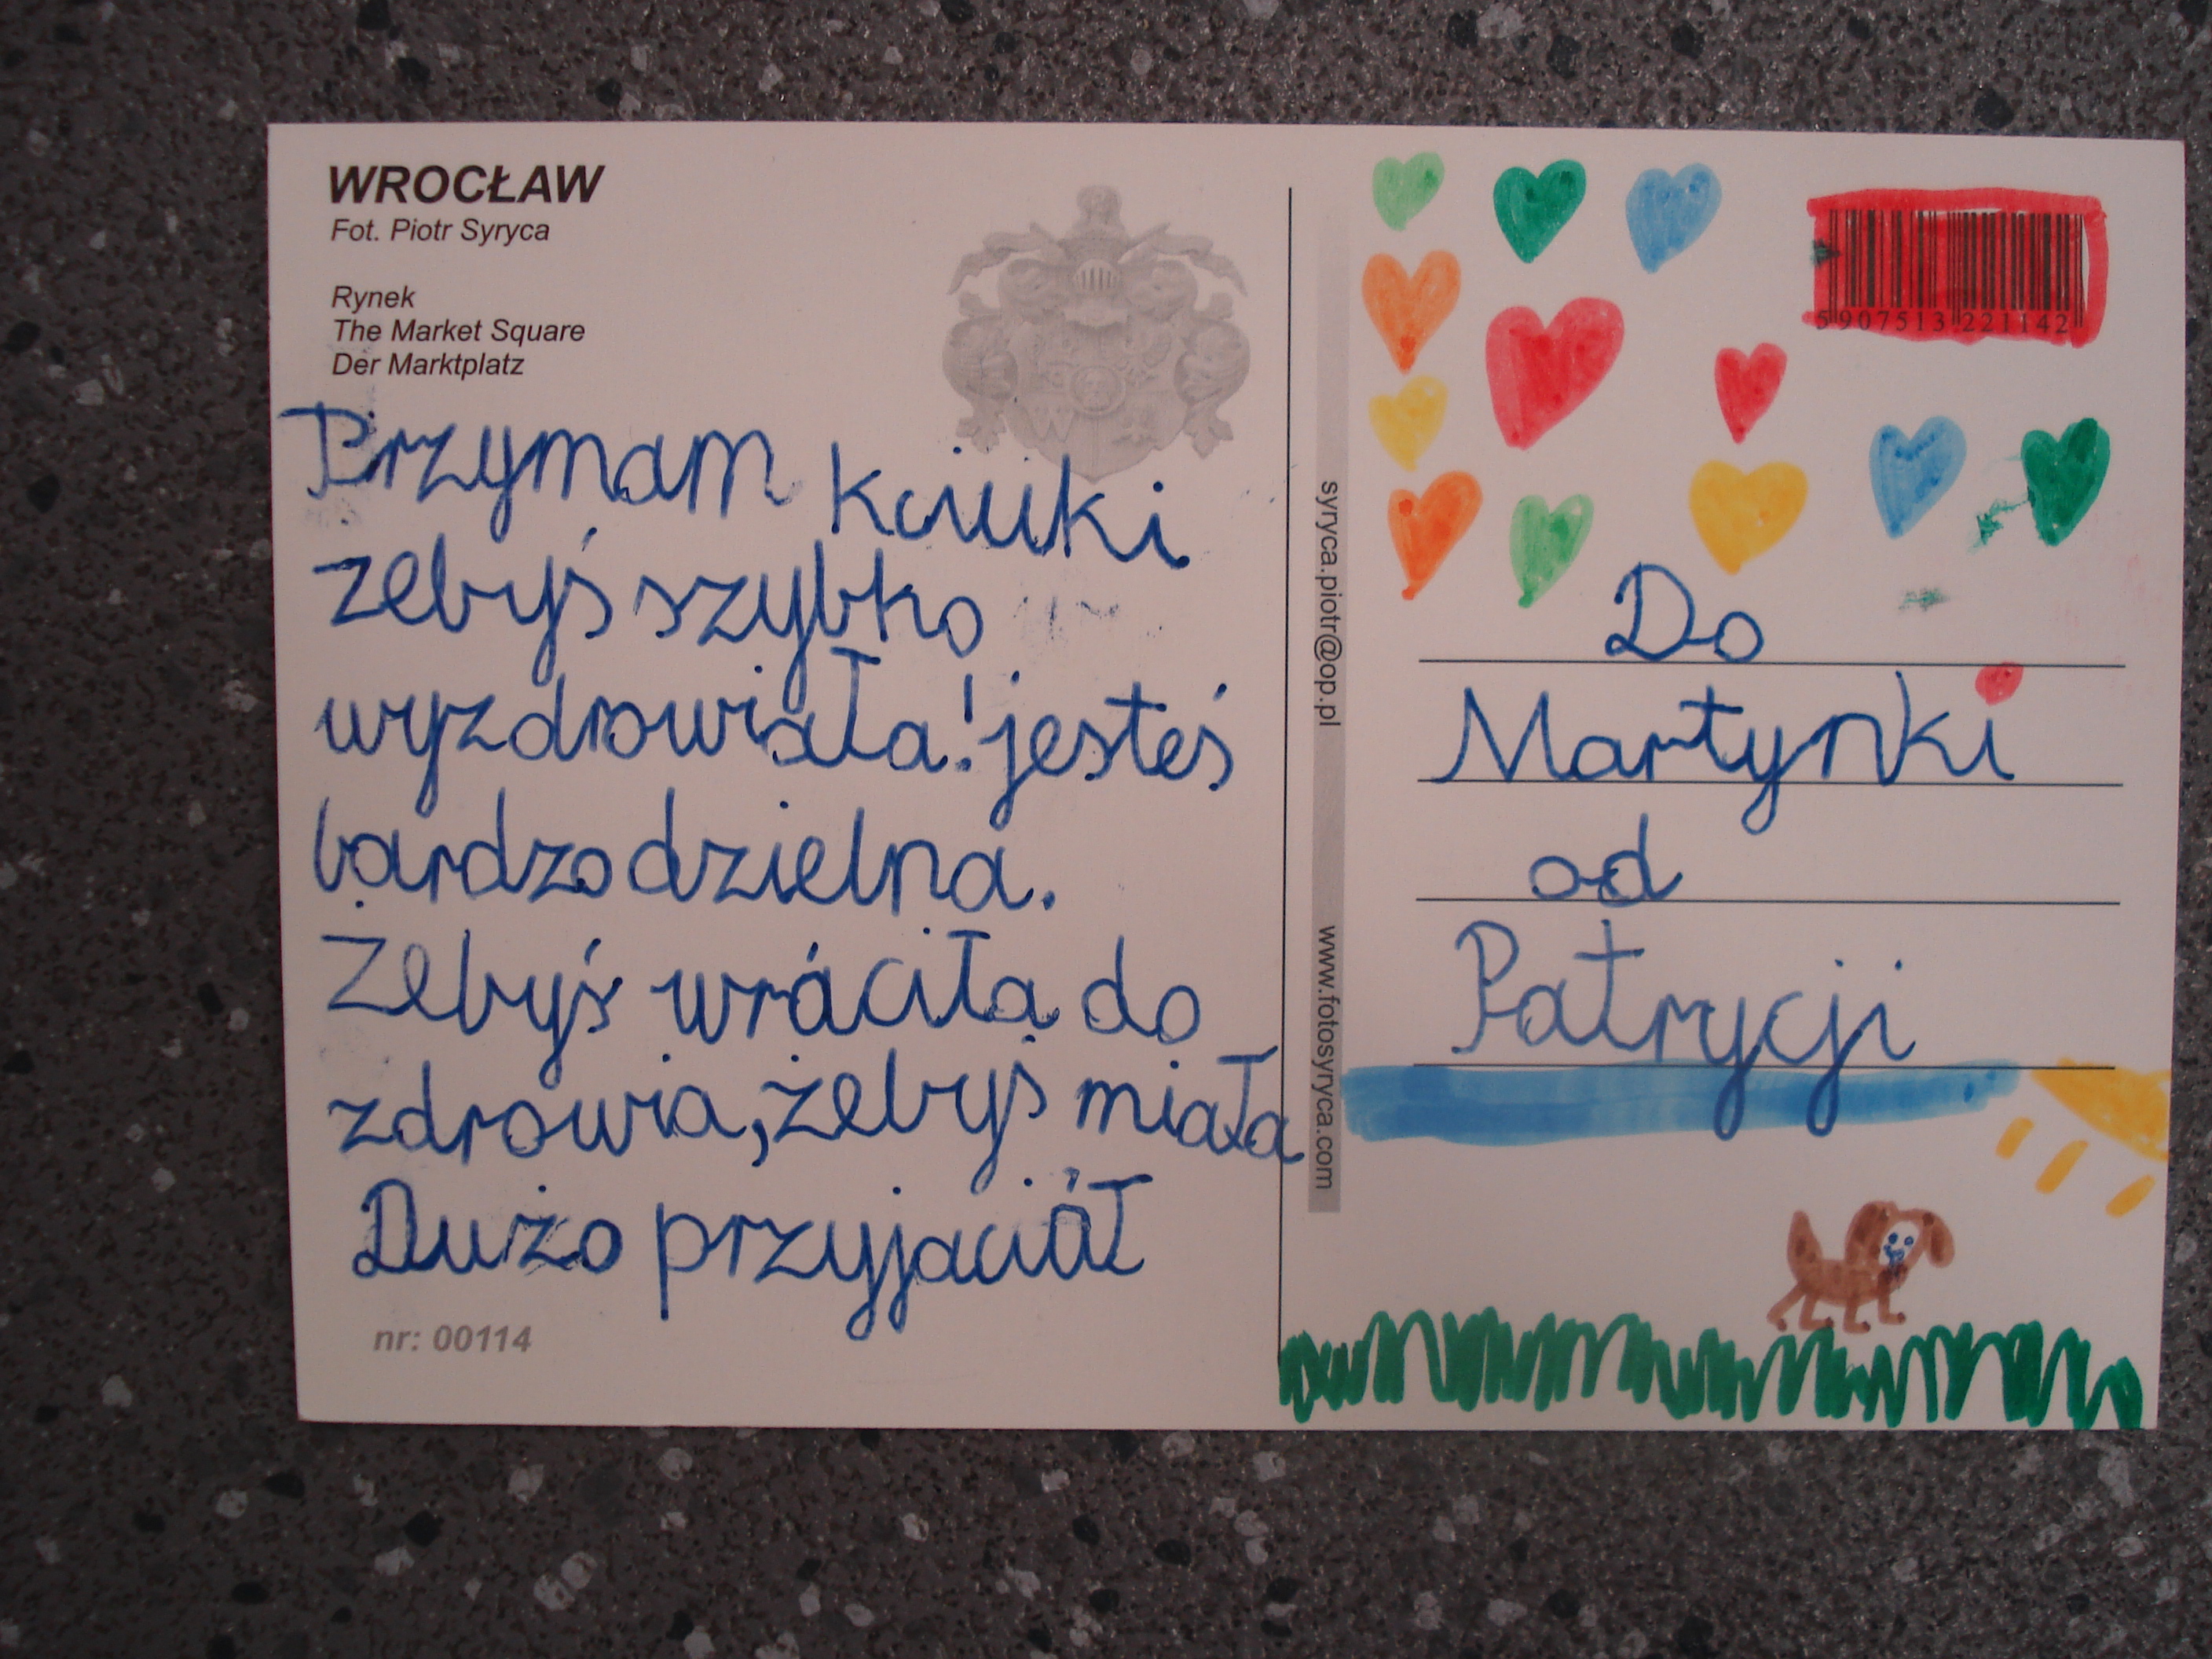 WROCŁAW
Fot. Piotr Syryca
Rynek
The Market Square
Der Marktplatz
Przymam kciuki
żebyś szybko
wyzdrowiała! jesteś
bardzo dzielna.
Żebyś wráciła do
zdrowia, żebyś miała
Dużo przyjaciół
nr: 00114
syryca.piotr@op.pl
www.fotosyryca.com
5907513221142
Do
Martynki
od
Patrycji